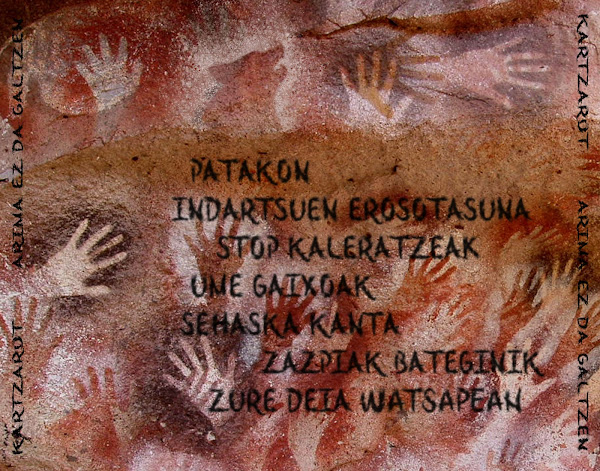 KARTZAROT ARINA EZ DA GALTZEN
PATAKON
INDARTSUEN EROSOTASUNA
STOP KALERATZEAK
UME GAIXOAK
SEHASKA KANTA
ZAZPIAK BATEGINIK
ZURE DEIA WATSAPEAN
KARTZAROT ARINA EZ DA GALTZEN